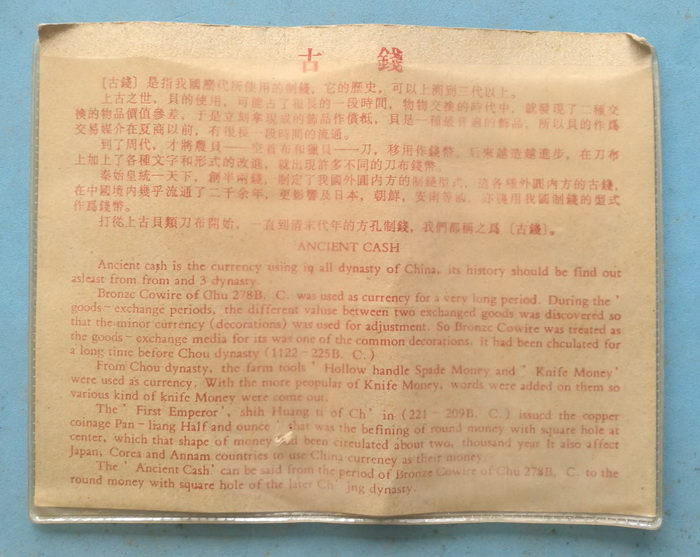 古 錢
〔古錢〕是指我國歷代所使用的制錢，它的歷史，可以上溯到三代以上。
上古之世，貝的使用，可能占了相長的一段時間，物物交換的時代中，就發現了二種交
換的物品價值參差，于是立刻拿現成的飾品作價抵，貝是一種最普遍的飾品，所以貝的作爲
交易媒介在夏商以前，有很長一段時間的流通。
到了周代，才將農具——空首布和獵具——刀，移用作錢幣，后來越造越進步，在刀布
上加上了各種文字和形式的改進，就出現許多不同的刀布錢幣。
秦始皇統一天下，創半兩錢，制定了我國外圓内方的制錢型式，這各種外圓内方的古錢，
在中國境内幾乎流通了二千余年，更影響及日本，朝鮮，安南等國，亦後用我國制錢的型式
作爲錢幣。
打從上古貝類刀布開始，一直到清末代年的方孔制錢，我們都稱之爲〔古錢〕。
ANCIENT CASH
Ancient cash is the currency using in all dynasty of China, its history should be find out
asleast from from and 3 dynasty.
Bronze Cowire of Chu 278B. C. was used as currency for a very long period. During the '
goods-exchange periods, the different valuse between two exchanged goods was discovered so
that the minor currency (decorations) was used for adjustment. So Bronze Cowire was treated as
the goods-exchange media for its was one of the common decorations. it had been chculated for
a long time before Chou dynasty (1122-225B. C.)
From Chou dynasty, the farm tools ' Hollow handle Spade Money and ' Knife Money'
were used as currency. With the more peopular of Knife Money, words were added on them so
various kind of knife Money were come out.
The ' First Emperor', shih Huang ti of Ch' in (221-209B. C.) issucd the copper
coinage Pan-liang Half and ounce ' that was the befining of round money with square hole at
center, which that shape of money had been circulated about two, thousand year It also affect
Japan, Corea and Annam countries to use China currency as their money.
The ' Ancient Cash' can be said from the period of Bronze Cowire of Chu 278B. C. to the
round money with square hole of the later Ch' jng dynasty.